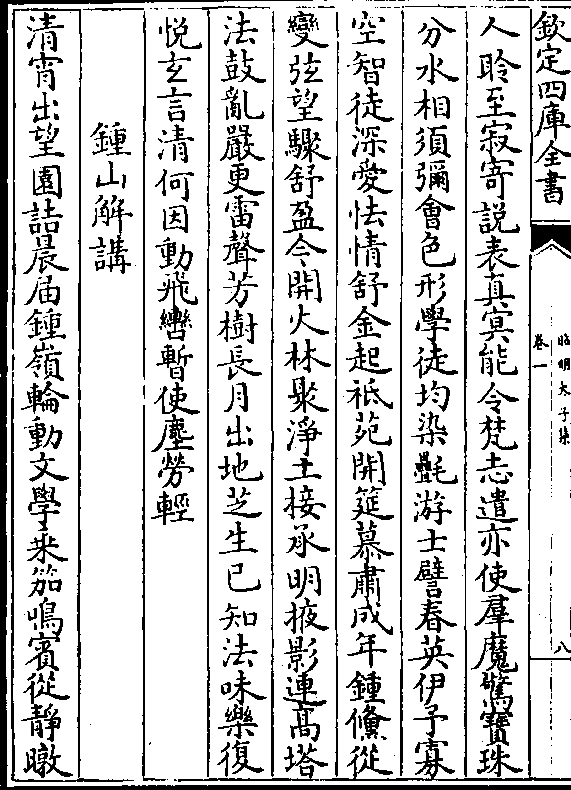 欽定四庫全書
昭明太子集
卷一
八
人聆至寂寄説表真冥能令梵志遣亦使羣魔驚寶珠
分水相須彌㑹色形學徒均染㲲游士譬春英伊予寡
空智徒深愛怯情舒金起祗苑開筵慕肅成年鍾儵從
變弦望驟舒盈今開火林聚淨土接承明掖影連高塔
法鼓亂嚴更雷聲芳樹長月出地芝生已知法味樂復
悦玄言清何因動飛轡暫使塵勞輕
鍾山解講
清宵出望園詰晨届鍾嶺輪動文學乗笳鳴賓從靜暾